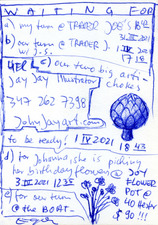 WAITING FOR
a) my turn @ TRADER JOE'S
31 III 2021
b) our turn @ TRADER J.
w/ J.-S.
1 IV 2021
c) our two big arti-
chokes
Jay Jay Illustrator
347 262 7398
JohnJayart.com
to be ready! 1 IV 2021 18 43
d) for Johanna, she is picking
her birthday flowers @ JOY
3 IV 2021 12 35
FLOWER
POT @
40 Hester
$ 90 !!!
e) for our turn
@ the BOAT